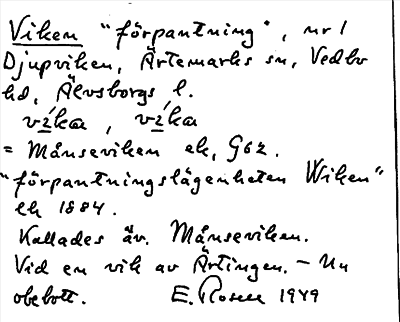 Viken "förpantning", nr 1
Djupviken, Ärtemarks sn, Vedbo
hd, Älvsborgs l.
vi̱ka, vi̱ka
= Månseviken ek, G62.
"förpantningslägenheten Wiken"
ek 1884.
Kallades äv. Månseviken.
Vid en vik av Ärtingen. – Nu
obebott. E. Rosell 1949